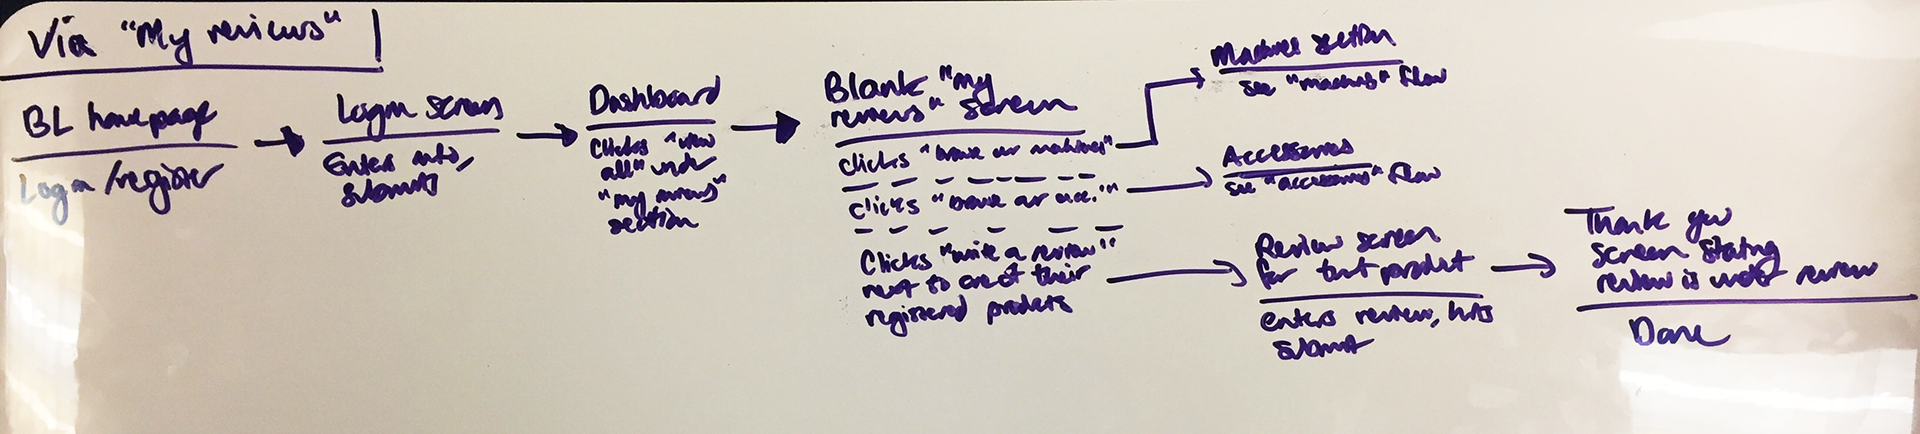 Via "My reviews"
BL homepage
Login/register
Login screen
Enters info,
submits
Dashboard
Clicks "view
all" under
"my reviews"
section
Blank "my
reviews" screen
clicks "browse our machines"
clicks "browse our acc."
Clicks "write a review"
next to one of their
registered products
Machines section
see "machines" flow
Accessories
see "accessories" flow
Review screen
for that product
enters review, hits
submit
Thank you
screen stating
review is under review
Done